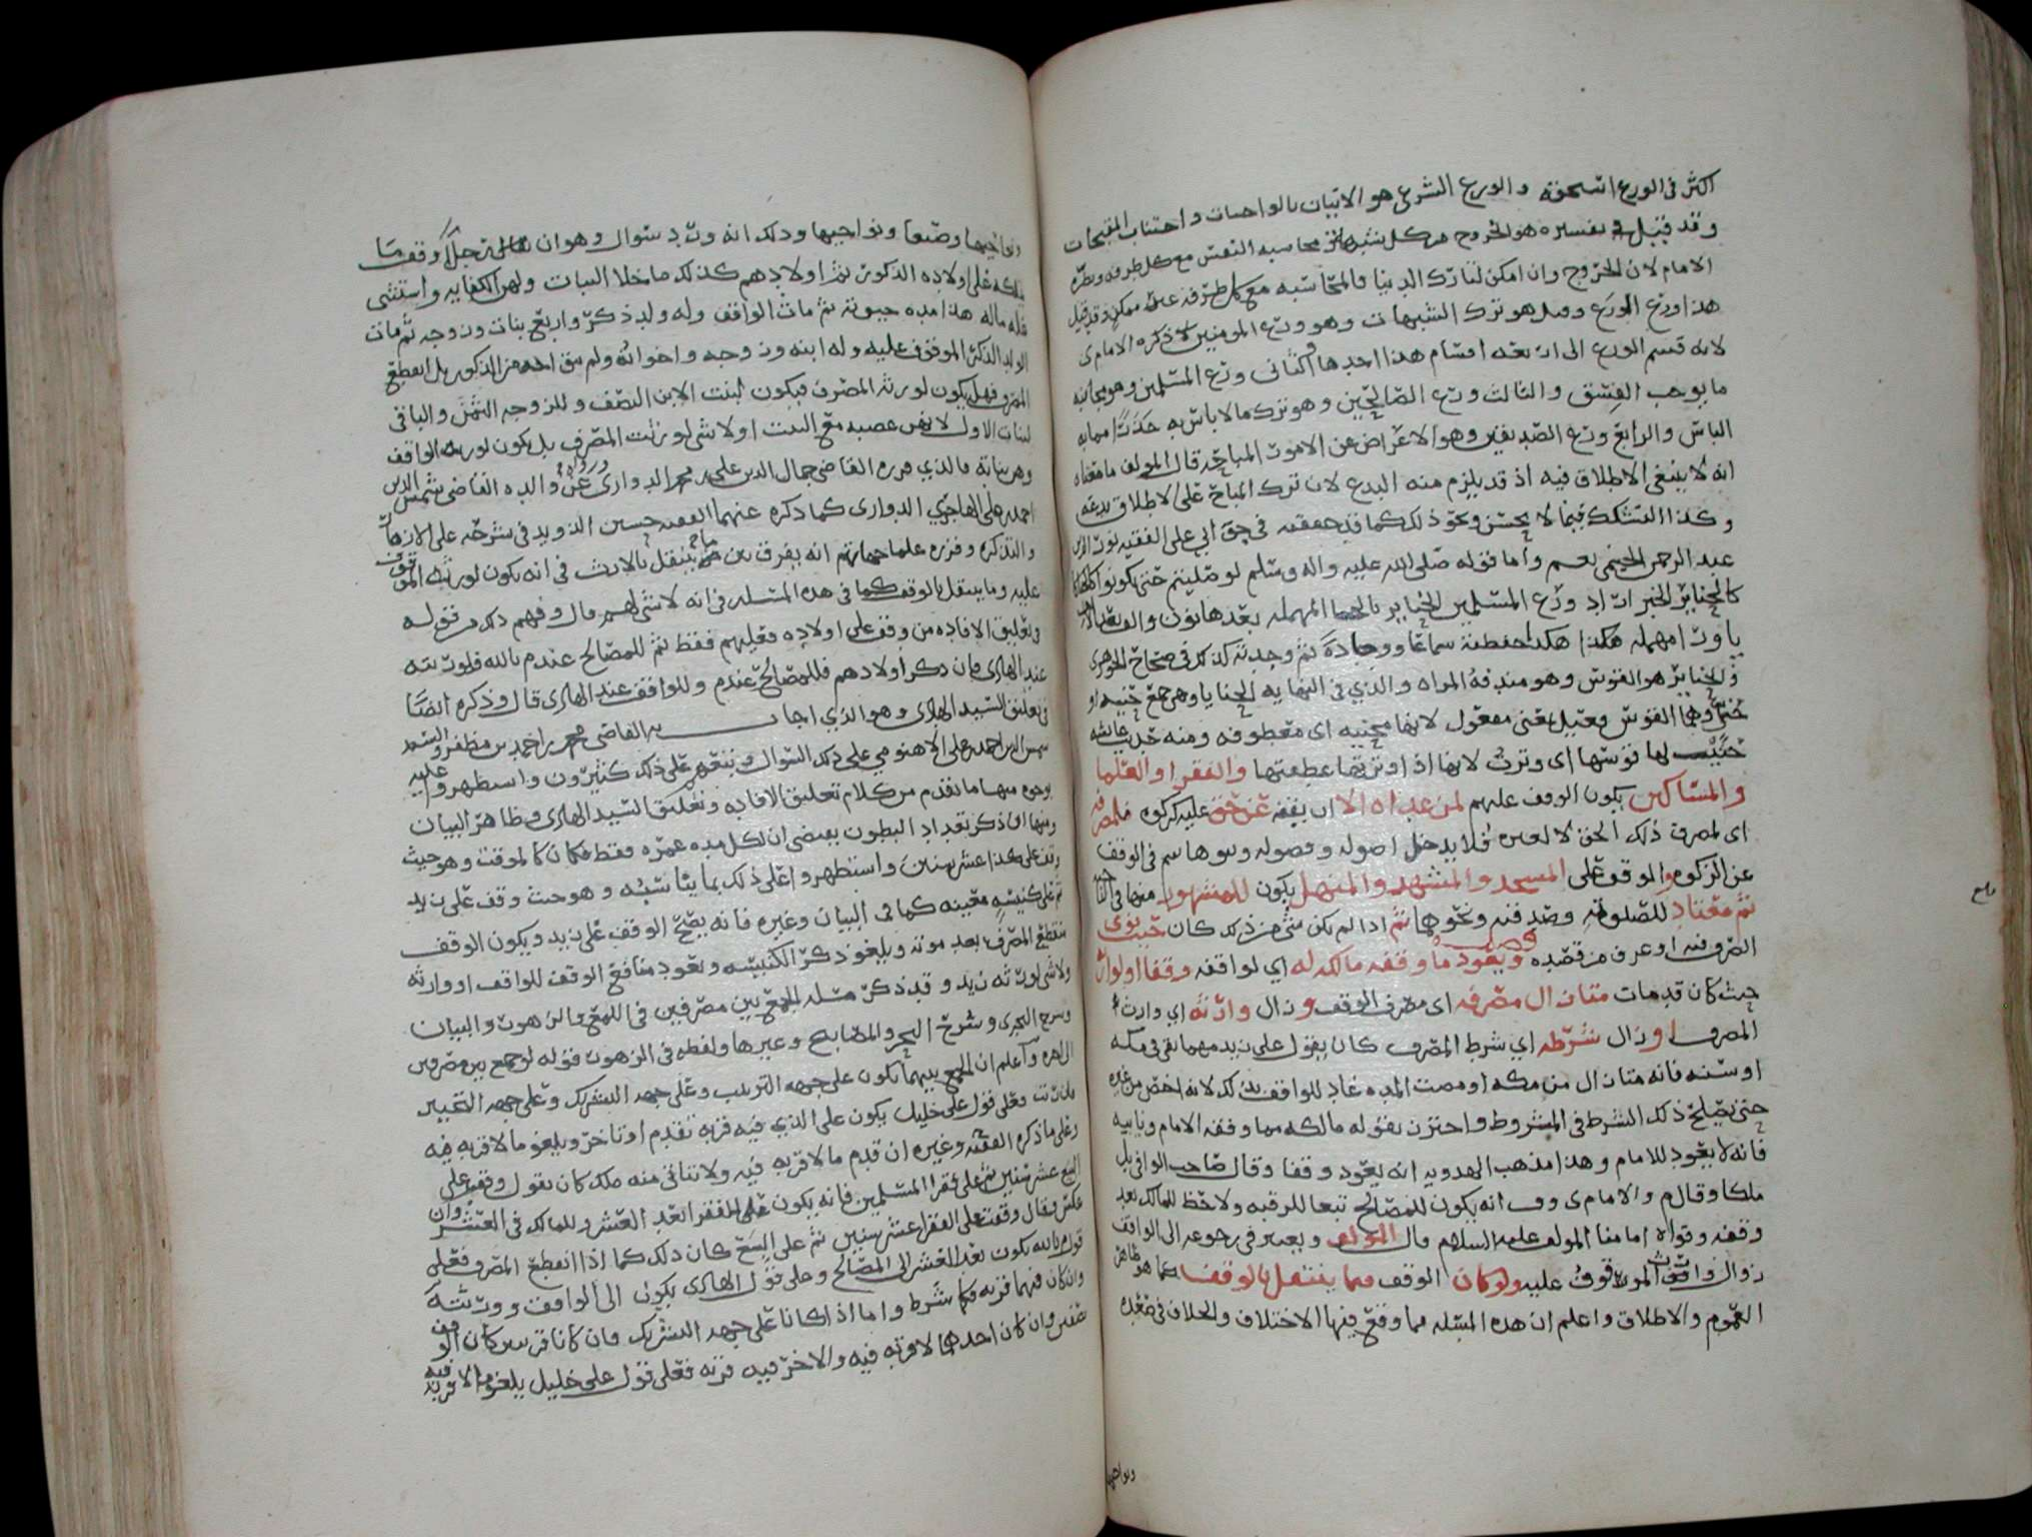 اكثر في الورع استحقه والورع الشرعي هو الاتيان بالواجبات واجتناب المقبحات
وقد قيل في تفسيره هو الخروج من كل شبهة ومحاسبه النفس مع كل طرفه ونظره
الامام لان الخروج وان امكن لتارك الدنيا فالمحاسبه مع كل طرفه غير ممكن وقد قيل
هذا ورع الورع وقيل هو ترك الشبهات وهو ورع المومنين ذكره الامام ى
لانه قسم الورع الى اربعه اقسام هذا احدها والثاني ورع المسلمين وهو مجانبه
ما يوجب الفسق والثالث ورع الصالحين وهو ترك ما لا باس به حذرا مما به
الباس والرابع ورع الصديقين وهو الاعراض عن الامور المباحه قال المولف ما معناه
انه لا ينبغي الاطلاق فيه اذ قد يلزم منه البدع لان ترك المباح على الاطلاق بدعه
وكذا التشكك فيما لا يحسن ونحو ذلك كما قد حققه في حق ابي علي الفقيه نور الدين
عبد الرحمن الحيمي نعم واما قوله صلى الله عليه واله وسلم لو صليتم حتى تكونوا
كالحنابر الخبر اراد ورع المسلمين الحنابر بالحا المهمله بعدها نون والف بعد الالف
يا ورا مهمله هكذا هكذا حفظته سماعا ووجادة ثم وجدته كذلك في صحاح الجوهري
والحناير هو القوس وهو مندفة المراه والذي في النهايه الحنايا وهي جمع حنيه او
حني وهما القوس فعيل بمعنى مفعول لانها محنيه اى معطوفه ومنه حديث عايشه
حنيت لها قوسها اى وترت لانها اذا وترتها عطفتها والفقرا والعلما
والمساكين يكون الوقف عليهم لمن عداه الا ان يقفه عن حق عليه كزكوه فلمصرفه
اى لمصرف ذلك الحق لا لغيره فلا يدخل اصوله وفصوله وبنو هاشم في الوقف
عن الزكوه والوقف على المسجد والمشهد والمنهل يكون للمشهور منها في الناحيه
ثم معتاد للصلوة وصدفته ونحوها ثم اذا لم يكن شي من ذلك كان حيث نوى
فصل
الصرف فيه او عرف من قصده ويعود ما وقفه مالكه له اي لواقفه وقفا او لوارثه
حيث كان قد مات متى زال مصرفه اى مصرف الوقف وزال وارثه اي وارث
المصرف او زال شرطه اي شرط المصرف كان يقول على زيد مهما بقي في مكه
او سنه فانه متى زال من مكه او مضت المده عاد للواقف بذلك لانه اخص من غيره
حتى يصلح ذلك الشرط في المشروط واحترز بقوله مالكه مما وقفه الامام ونايبه
فانه لا يعود للامام وهذا مذهب الهدويه انه يعود وقفا وقال صاحب الوافي بل
ملكا وقال م والامام ى وف انه يكون للمصالح تبعا للرقبه ولا حظ للمالك بعد
وقفه وقواه امامنا المولف عليه السلام قال المولف ويعتبر في رجوعه الى الواقف
زوال وارث الموقوف عليه ولو كان الوقف مما ينتقل بالوقف كما هو ظاهر
العموم والاطلاق واعلم ان هذه المسله مما وقع فيها الاختلاف والخلاف في صعده
ونواحيها
ونواحيها وصنعا ونواحيها وذلك انه ورد سوال وهو ان رجلا وقف ما
ملكه على اولاده الذكور ثم اولادهم كذلك ما خلا البنات ولهن الكفايه واستثنى
غله ماله هذا مده حيوته ثم مات الواقف وله ولد ذكر واربع بنات وزوجه ثم مات
الولد الذكر الموقوف عليه وله ابنه وزوجه واخواته ولم يبق احد من الذكور بل انقطع
المصرف فهل يكون لورثه المصرف فيكون لبنت الابن النصف وللزوجه الثمن والباقي
لبنات الاول لانهن عصبه مع البنت او لا شي لورثه المصرف بل يكون لورثه الواقف
وهن بناته فالذي قرره القاضي جمال الدين علي بن محمد الدواري وعن والده القاضي شمس الدين
احمد بن علي الدواري كما ذكره عنهما الفقيه حسين الذويد في شرحه على الازهار
والتذكره وقرره علما جهاتهم انه يفرق بين ما ينتقل بالارث في انه يكون لورثه الموقوف
عليه وما ينتقل بالوقف كما في هذه المسله في انه لا شي لهم قال وفهم ذلك من قوله
في تعليق الافاده من وقف على اولاده فعليهم فقط ثم للمصالح عند م بالله فلورثته
عند الهادى فان ذكر اولادهم فللمصالح عند م وللواقف عند الهادى قال وذكره ايضا
في تعليق السيد الهادى وهو الذي اجاب به القاضي محمد بن احمد بن مظفر والسيد
شمس الدين احمد بن علي الاهنومي على ذلك السوال وتبعهم على ذلك كثيرون واستظهروا عليه
بوجوه منها ما تقدم من كلام تعليق الافاده وتعليق السيد الهادى وظاهر البيان
ومنها ان ذكر تعداد البطون يقتضى ان لكل مده عمره فقط فكان كالموقت وهو حيث
وقف على هذا عشر سنين واستظهروا على ذلك بما يناسبه وهو حيث وقف على زيد
ثم على كنيسه معينه كما في البيان وغيره فانه يصح الوقف على زيد ويكون الوقف
منقطع المصرف بعد موته ويلغو ذكر الكنيسه وتعود منافع الوقف للواقف او وارثه
ولا شي لورثه زيد وقد ذكر مسله الجمع بين مصرفين في اللمع والزهور والبيان
وشرح البحرى وشرح البحر والمصابيح وغيرها ولفظه في الزهور قوله لو جمع بين مصرفين
الى اخره واعلم ان الجمع بينهما يكون على جهه الترتيب وعلى جهه التشريك وعلى جهه التخيير
فان رتب فعلى قول علي خليل يكون على الذي فيه قربه تقدم او تاخر ويلغو ما لا قربه فيه
وعلى ما ذكره الفقيه وغيره ان قدم ما لا قربه فيه ولا تنافي منه ملك كان يقول وقفت على
البيع عشر سنين ثم على فقرا المسلمين فانه يكون على الفقرا بعد العشر وللمالك في العشر وان
عكس وقال وقفت على الفقرا عشر سنين ثم على البيع كان ذلك كما اذا انقطع المصرف فعلى
قول م بالله يكون بعد العشر الى المصالح وعلى قول الهادى يكون الى الواقف وورثته
وان كان فيهما قربه فكما شرط واما اذا كانا على جهه التشريك فان كانا قربتين كان الوقف
نصفين وان كان احدهما لا قربه فيه والاخر فيه قربه فعلى قول علي خليل يلغو ما لا قربه فيه